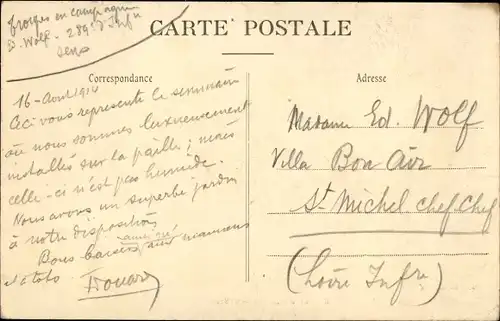 Troupes en campagne
Ed. Wolf - 289e d'Infie
Sens
CARTE POSTALE
Correspondance
Adresse
16 - Août 1914
Ceci vous représente le séminaire
où nous sommes luxueusement
installés sur la paille ; mais
celle-ci n'est pas humide.
Nous avons un superbe jardin
à notre disposition
Bons baisers aux mamans
et à toto.
Edouard
Madame Ed. Wolf
Villa Bon Air
St Michel Chef Chef
(Loire Infre)